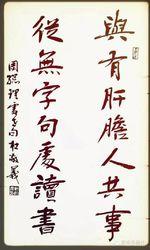 與有肝膽人共事
從無字句處讀書
周總理書